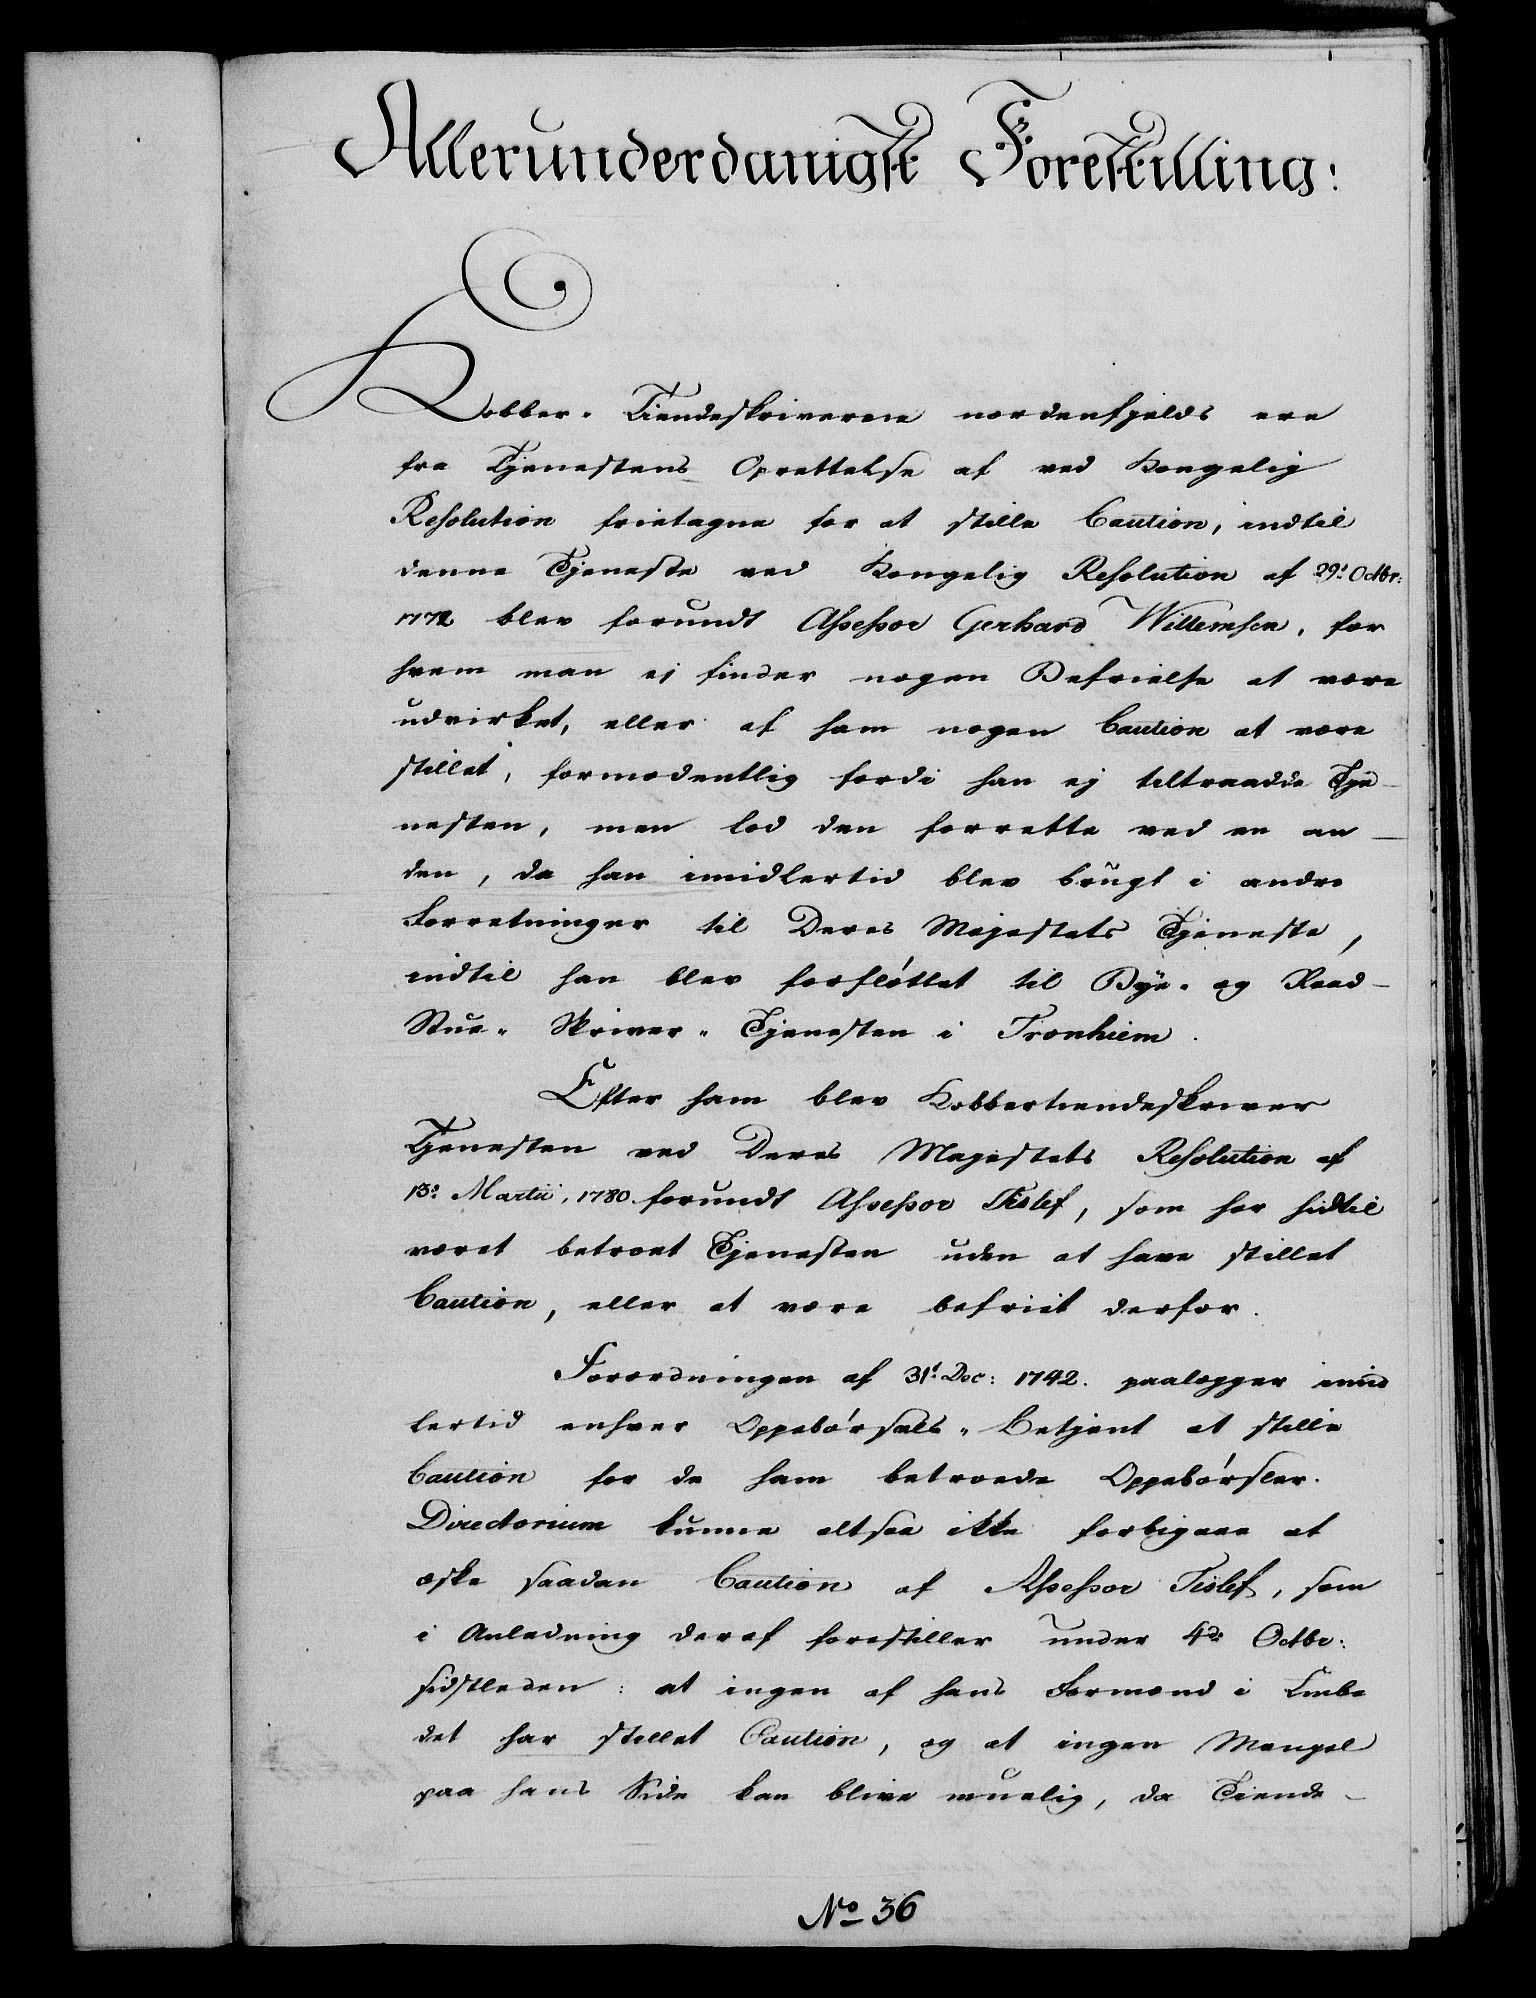 Allerunderdanigst Forestilling:
Kobber-Tiendeskriverne nordenfjelds ere
fra Tjenestens Oprettelse af ved Kongelig
Resolution fritagne for at stille Caution, indtil
denne Tjeneste ved Kongelig Resolution af 29d. Octbr:
1772 blev forundt Assessor Gerhard Willemsen, for
hvem man ej finder nogen Befrielse at være
udvirket, eller af ham nogen Caution at være
stillet, formodentlig fordi han ej tiltraadde Tje-
nesten, men lod den forrette ved en an-
den, da han imidlertid blev brugt i andre
Forretninger til Deres Majestæts Tjeneste,
indtil han blev forfløttet til Bye- og Raad-
Stue-Skriver-Tjenesten i Tronhiem.
Efter ham blev Kobbertiendeskriver
Tjenesten ved Deres Majestæts Resolution af
13d. Martii, 1780. forundt Assessor Tislef, som har hidtil
været betroet Tjenesten uden at have stillet
Caution, eller at være befriet derfor.
Forordningen af 31d. Dec: 1742. paalægger imid
lertid enhver Oppebørsels-Betjent at stille
Caution for de ham betroede Oppebørsler.
Directorium kunne altsaa ikke forbigaae at
æske saadan Caution af Assessor Tislef, som
i Anledning deraf forestiller under 4de Octbr:
sidstleden: at ingen af hans Formænd i Embe
det har stillet Caution, og at ingen Mangel
paa hans Side kan blive muelig, da Tiende-
No 36